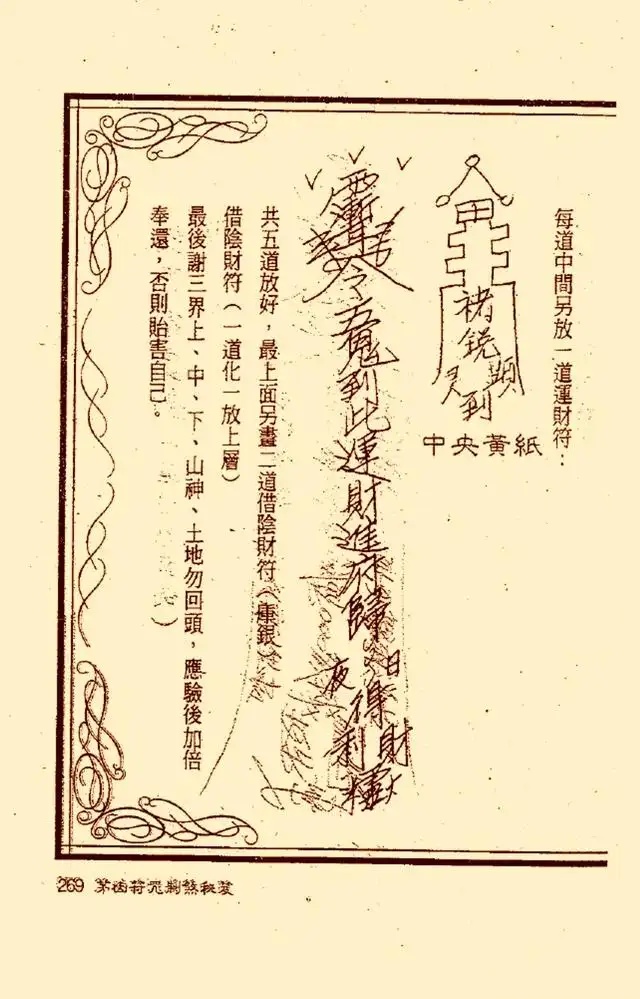 每道中間另放一道運財符：
田
褚鋭
到
中央黃紙
令五鬼到此運財進府歸
日夜
得財
利
共五道放好，最上面另畫二道借陰財符（庫銀
借陰財符（一道化一放上層）
最後謝三界上、中、下、山神、土地勿回頭，應驗後加倍
奉還，否則貽害自己。）
269